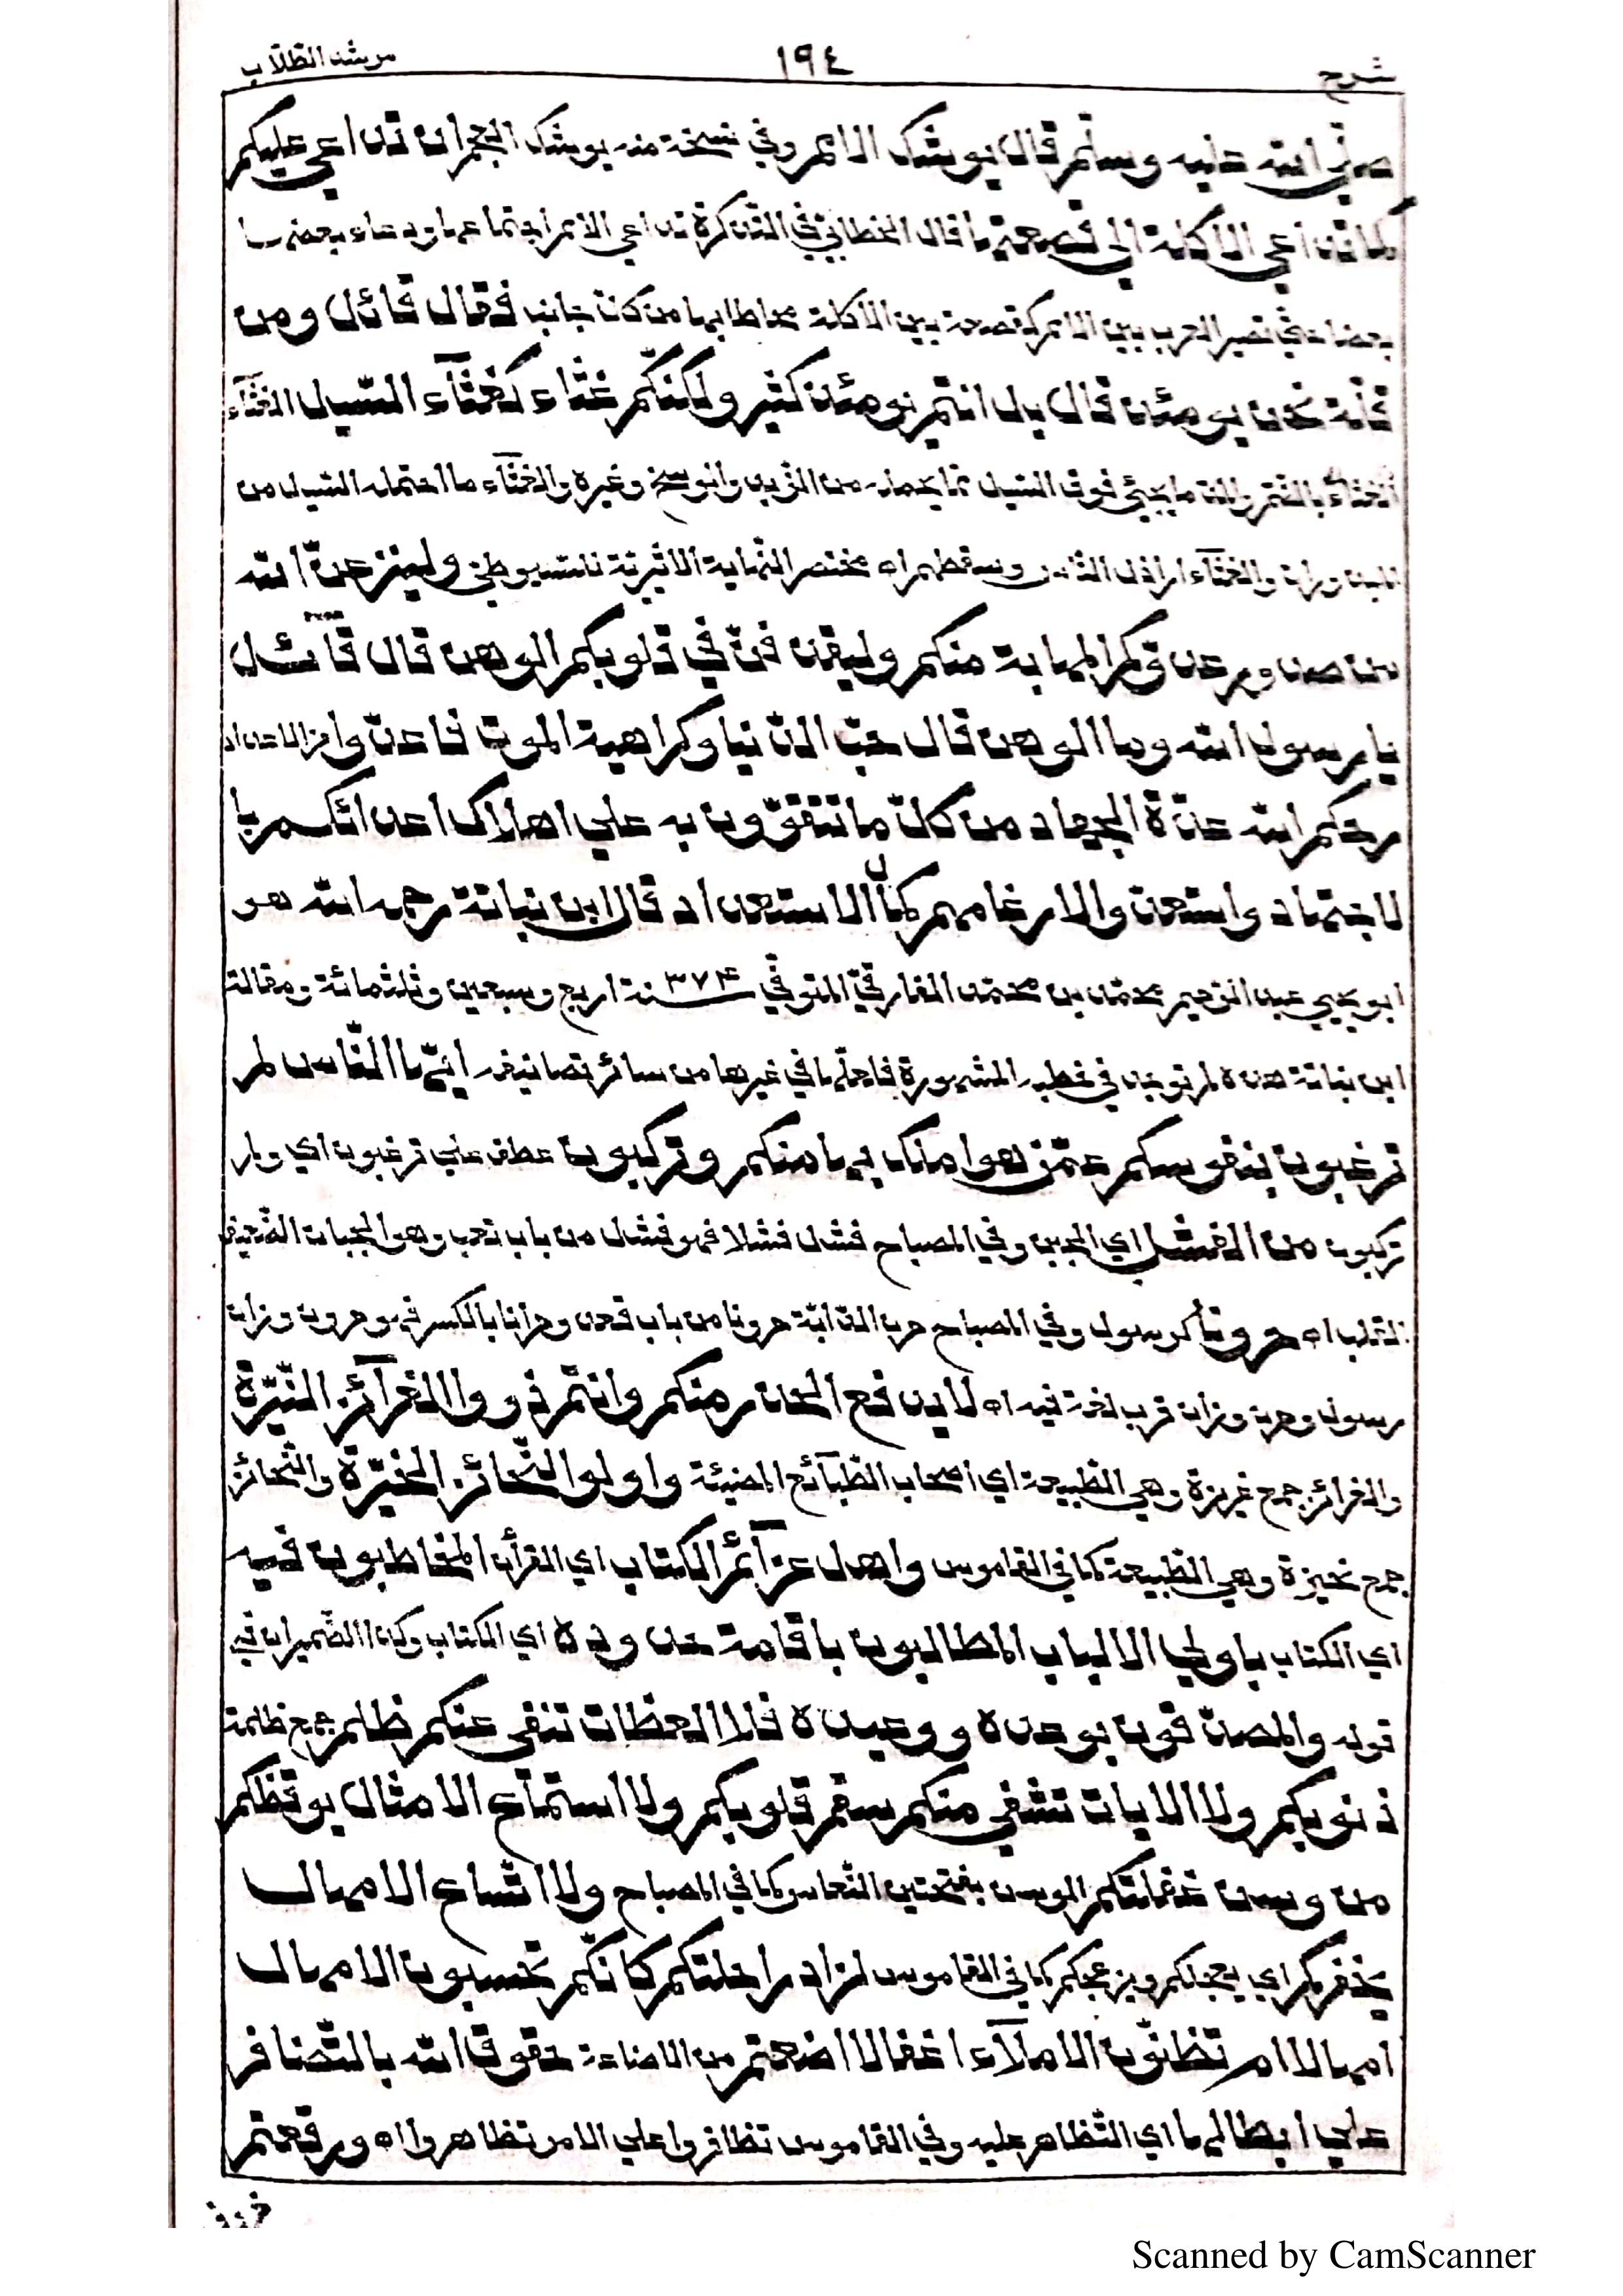 شرح ١٩٤ مرشد الطلاب
صلى الله عليه وسلم قال يوشك الامم وفي نسخة منه يوشك الجمران تداعي عليكم
كما تداعي الاكلة الى قصعتها قال الخطابي في التذكرة تداعي الامم اجتماعها ودعاء بعضها
بعضا حتي تصير العرب بين الامم كقصعة بين الاكلة فقال قائل ومن
قلة نحن يومئذ قال بل انتم يومئذ كثير ولكنكم غثاء كغثآء السيل الغثآء
الغثاء بالضم والمد ما يجيئ فوق السيل مما يحمله من الزبد والوسخ وغيره والغثآء ما احتمله السيل من
والغثآء اراذل الناس وسقطهم اه مختصر النهاية الاثيرية للسيوطي ولينزعن الله
من صدور عدوكم المهابة منكم وليقذفن في قلوبكم الوهن قال قائل
يا رسول الله وما الوهن قال حب الدنيا وكراهية الموت فاعدوا من الاعداد
رحمكم الله عدة الجهاد من كل ما تتقوون به علي اهلاك اعدائكم يا
لاجتهاد واستعدوا لارغامهم كمال الاستعداد قال ابن نباتة رحمه الله هو
ابو يحيي عبد الرحيم محمد بن محمد الفارقي المتوفي ٣٧٤ سنة اربع وسبعين وثلثمائة ومقالة
ابن نباتة هذه لم توجد في خطبه المشهورة فلعلها في غيرها من سائر تصانيفه ايها الناس لم
ترغبون بنفوسكم عمن هو املك بها منكم وتركبون عطف علي ترغبون اي ولم
تركبون من الفشل اي الجبن وفي المصباح فشل فشلا فهو فشل من باب تعب وهو الجبان الضعيف
القلب اه حرونا كرسول وفي المصباح حرن الدابة حرونا من باب قعد وحرانا بالكسر فهو حرون وزان
رسول وحرن وزان قرب لغة فيه اه لا يدفع الحذر منكم وانتم ذووا الغرآئز النيرة
والغرائز جمع غريزة وهي الطبيعة اي اصحاب الطبآئع المضيئة واولوا النحائز الخيرة والنحائز
جمع نحيزة وهي الطبيعة كما في القاموس واهل عزآئم الكتاب اي القرأن المخاطبون فيه
اي الكتاب باولي الالباب المطالبون باقامة حدوده اي الكتاب وكذا الضميران في
قوله والمصدقون بوعده ووعيده فلا العظات تنفي عنكم ظلم جمع ظلمة
ذنوبكم ولا الايات تشفي منكم سقم قلوبكم ولا استماع الامثال يوقظكم
من وسن غفلتكم الوسن بفتحتين النعاس كما في المصباح ولا اتساع الامهال
يحفزكم اي يعجلكم ويزعجكم كما في القاموس لزاد راحلتكم كانكم تحسبون الامهال
امهالا ام تظنون الاملآء اغفالا اضعتم من الاضاعة حقوق الله بالتضافر
علي ابطالها اي التظاهر عليه وفي القاموس تظافروا علي الامر تظاهروا اه ورقعتم
Scanned by CamScanner